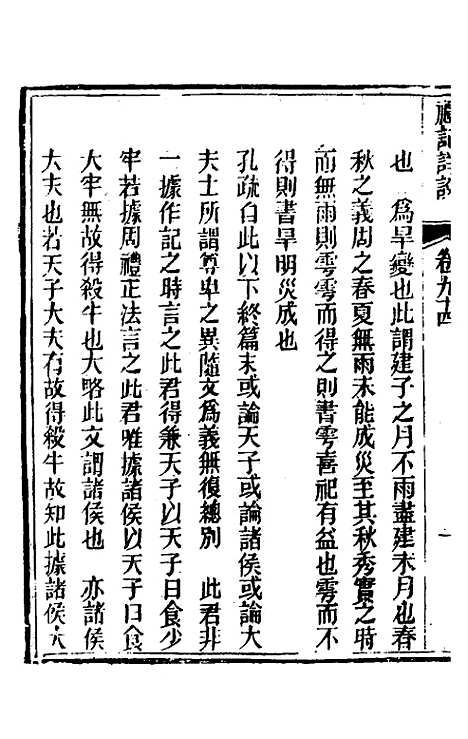 禮記詳說
卷九十四
一
也　為旱變也此謂建子之月不雨盡建未月也春
秋之義周之春夏無雨未能成災至其秋秀實之時
而無雨則雩雩而得之則書雩喜祀有益也雩而不
得則書旱明災成也
孔疏曰此以下終篇末或論天子或論諸侯或論大
夫士所謂尊卑之異隨文為義無復總別　此君非
一據作記之時言之此君得兼天子以天子日食少
牢若據周禮正法言之此君唯據諸侯以天子日食
大牢無故得殺牛也大略此文謂諸侯也　亦諸侯
大夫也若天子大夫有故得殺牛故知此據諸侯大